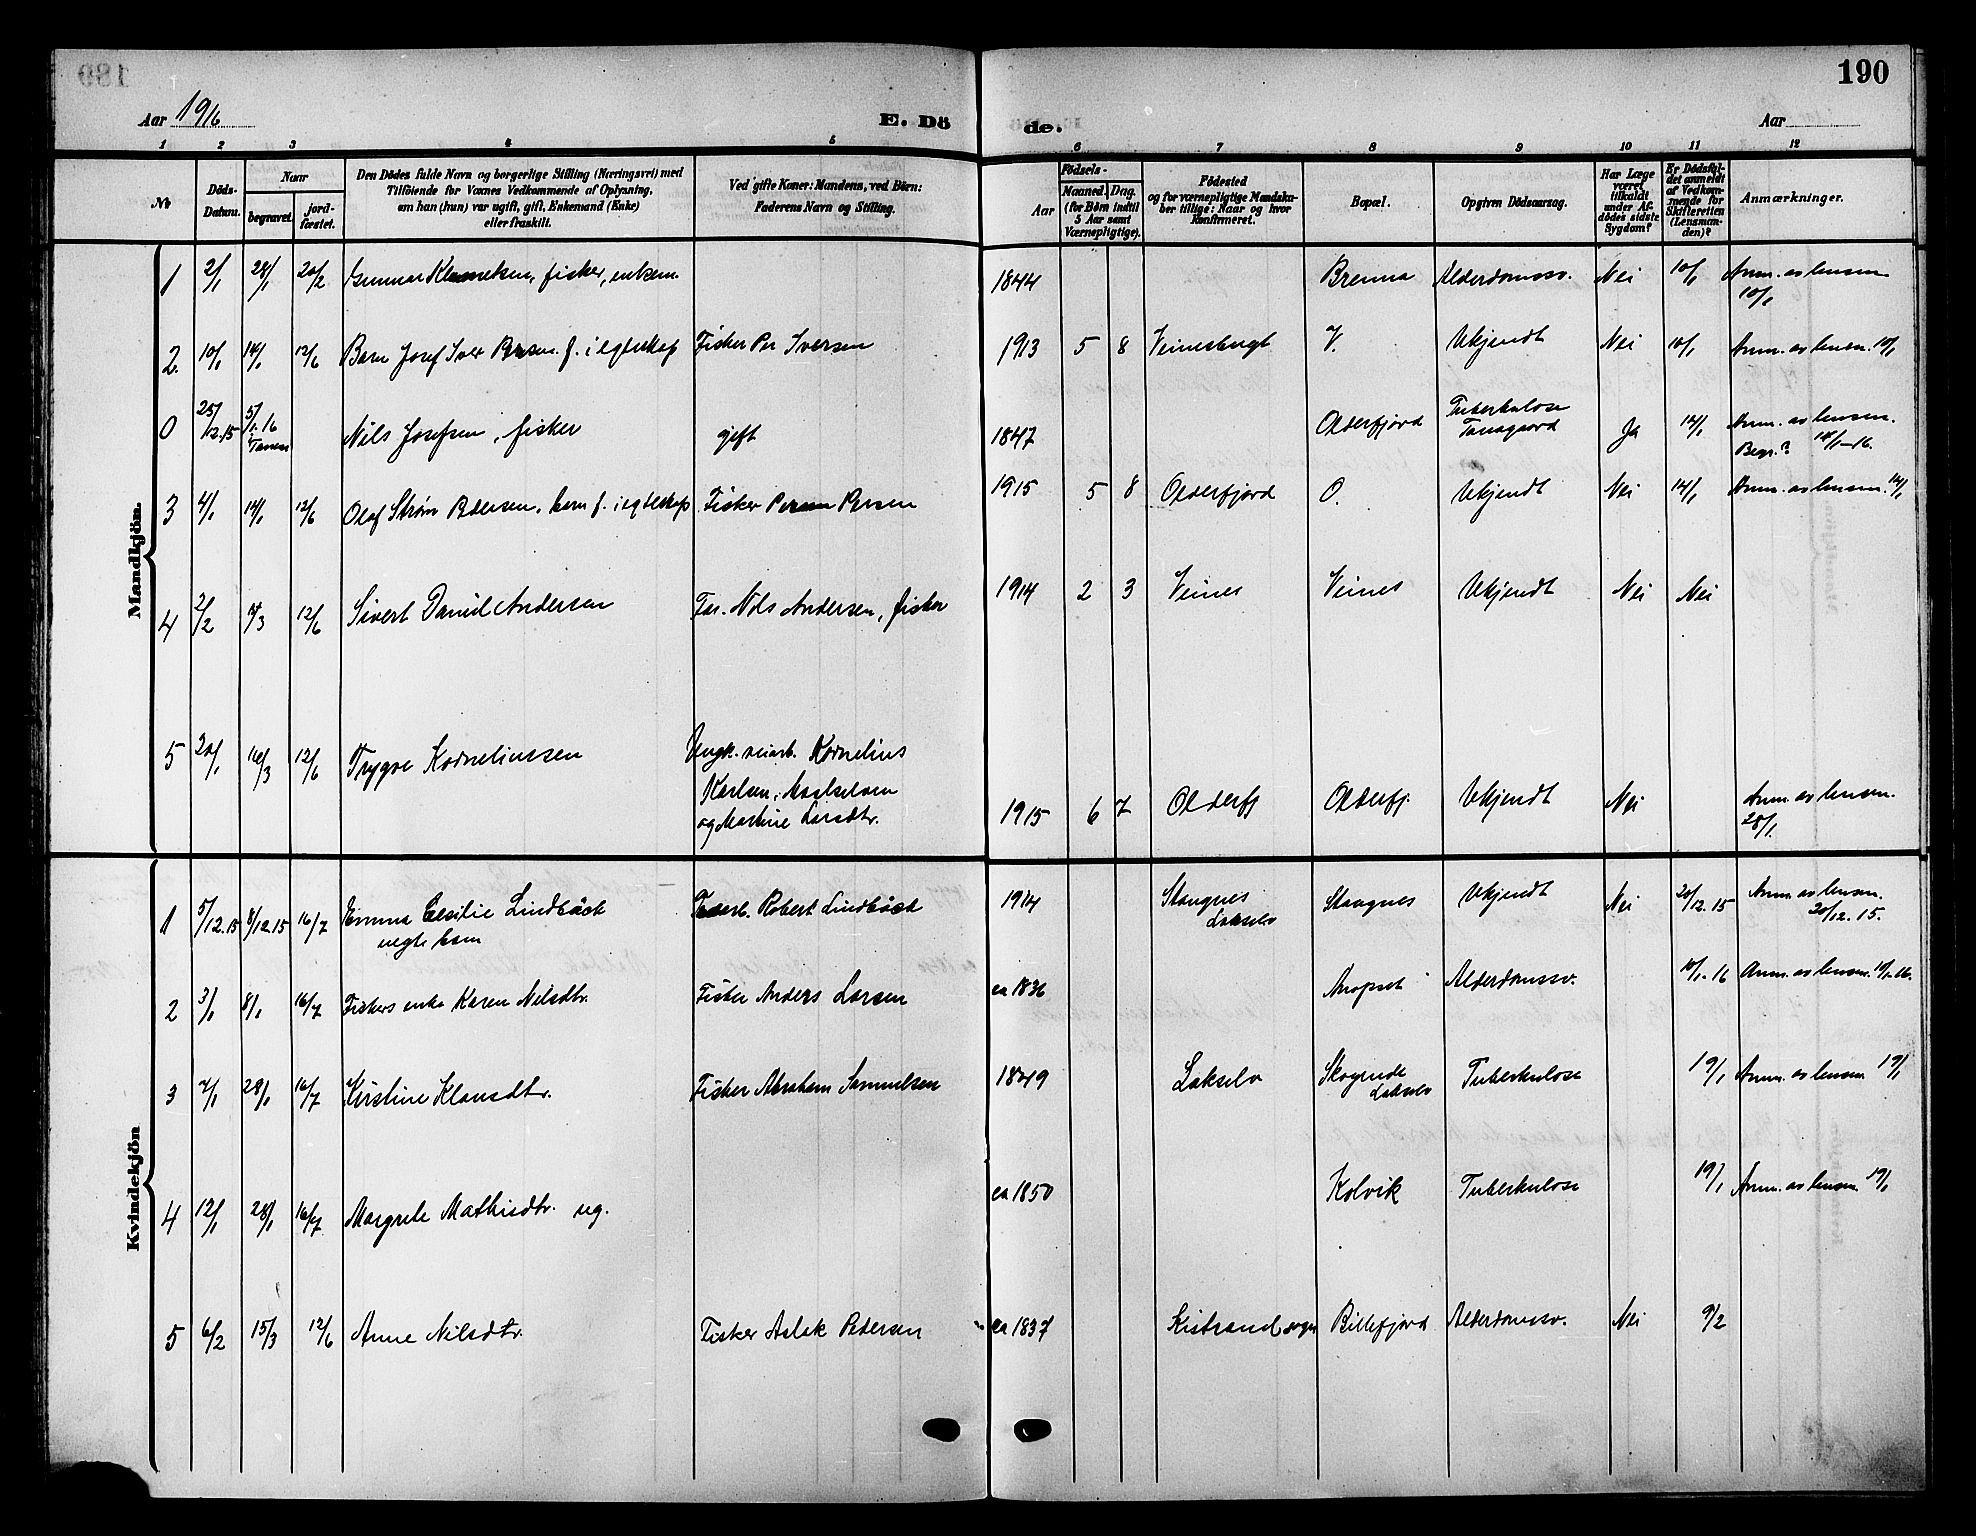 190
Aar 1916
E. Dö
de.
Aar
1 2 3 4 5 6 7 8 9 10 11 12
No
Döds-
Datum.
Naar
begravet.
jord-
fæstet.
Den Dödes fulde Navn og borgerlige Stilling (Næringsvei) med
Tilföiende for Voxnes Vedkommende af Oplysning,
om han (hun) var ugift, gift, Enkemand (Enke)
eller fraskilt.
Ved gifte Koner: Mandens, ved Börn:
Faderens Navn og Stilling.
Födsels-
Aar
Maaned. Dag.
(for Börn indtil
5 Aar samt
Værnepligtige).
Födested
og for værnepligtige Mandska-
ber tillige: Naar og hvor
Konfirmeret.
Bopæl.
Opgiven Dödsaarsag.
Har Læge
været
tilkaldt
under Af-
dödes sidste
Sygdom?
Er Dödsfal-
det anmeldt
af Vedkom-
mende for
Skifteretten
(Lensman-
den)?
Anmærkninger.
Mandkjön.
1 2/1 28/1 20/2 Gunnar Klemetsen, fisker, enkem. 1844 Brenna Alderdomssv. Nei 10/1 Anm. av lensm.
10/1
2. 10/1 14/1 12/6 Barn Josef Iver Persen f. i egteskap Fisker Per Iversen 1913 5 8 Veinesbugt V. Ukjendt Nei 10/1 Anm. av lensm. 10/1
0 25/12.15 5/1.16 Nils Josefsen, fisker gift 1847 Olderfjord Tuberkulose
Tanagaard Ja 14/1 Anm. av lensm.
Begr.? 14/1-16.
3 4/1 14/1 12/6 Olaf Strøm Pedersen, barn f. i egteskap Fisker Persen 1915 5 8 Olderfjord O. Ukjendt Nei 14/1 Anm. av lensm. 14/1
4 2/2 12/6 Sivert Daniel Andersen Far. Nils Andersen, fisker 1914 2 3 Veines Veines Ukjendt Nei Nei
5 20/1 16/3 12/6 Trygve Korneliussen Ungk. Kornelius
Karlsen, Maalselven
og Martine Larsdtr. 1915 6 7 Olderfj Olderfj. Ukjendt Nei Anm. av lensm.
28/1.
Kvindekjön
1 5/12.15 8/12.15 16/7 Emma Cesilie Lindbäck
uegte barn Robert Lindbäck 1914 Stangnes
Lakselv Stangnes Ukjendt Nei 20/12.15 Anm. av lensm.
20/12.15.
2 3/1 8/1 16/7 Fiskers enke Karen Nilsdtr. Fisker Anders Larsen ca 1836 Anopset Alderdomssv. 10/1-16 Anm. av lensm. 10/1-16.
3 7/1 28/1 16/7 Kirstine Klausdtr. Fisker Abraham Samuelsen 1849 Lakselv Lakselv Tuberkulose 19/1 Anm. av lensm. 19/1
4 12/1 28/1 16/7 Margrete Mathisdtr. ug. ca 1850 Kolvik Tuberkulose 19/1 Anm. av lensm. 19/1
5 6/2 15/3 12/6 Anne Nilsdtr. Fisker Aslak Pedersen ca 1837 Kistrand sogn Billefjord Alderdomssv. Nei 9/2